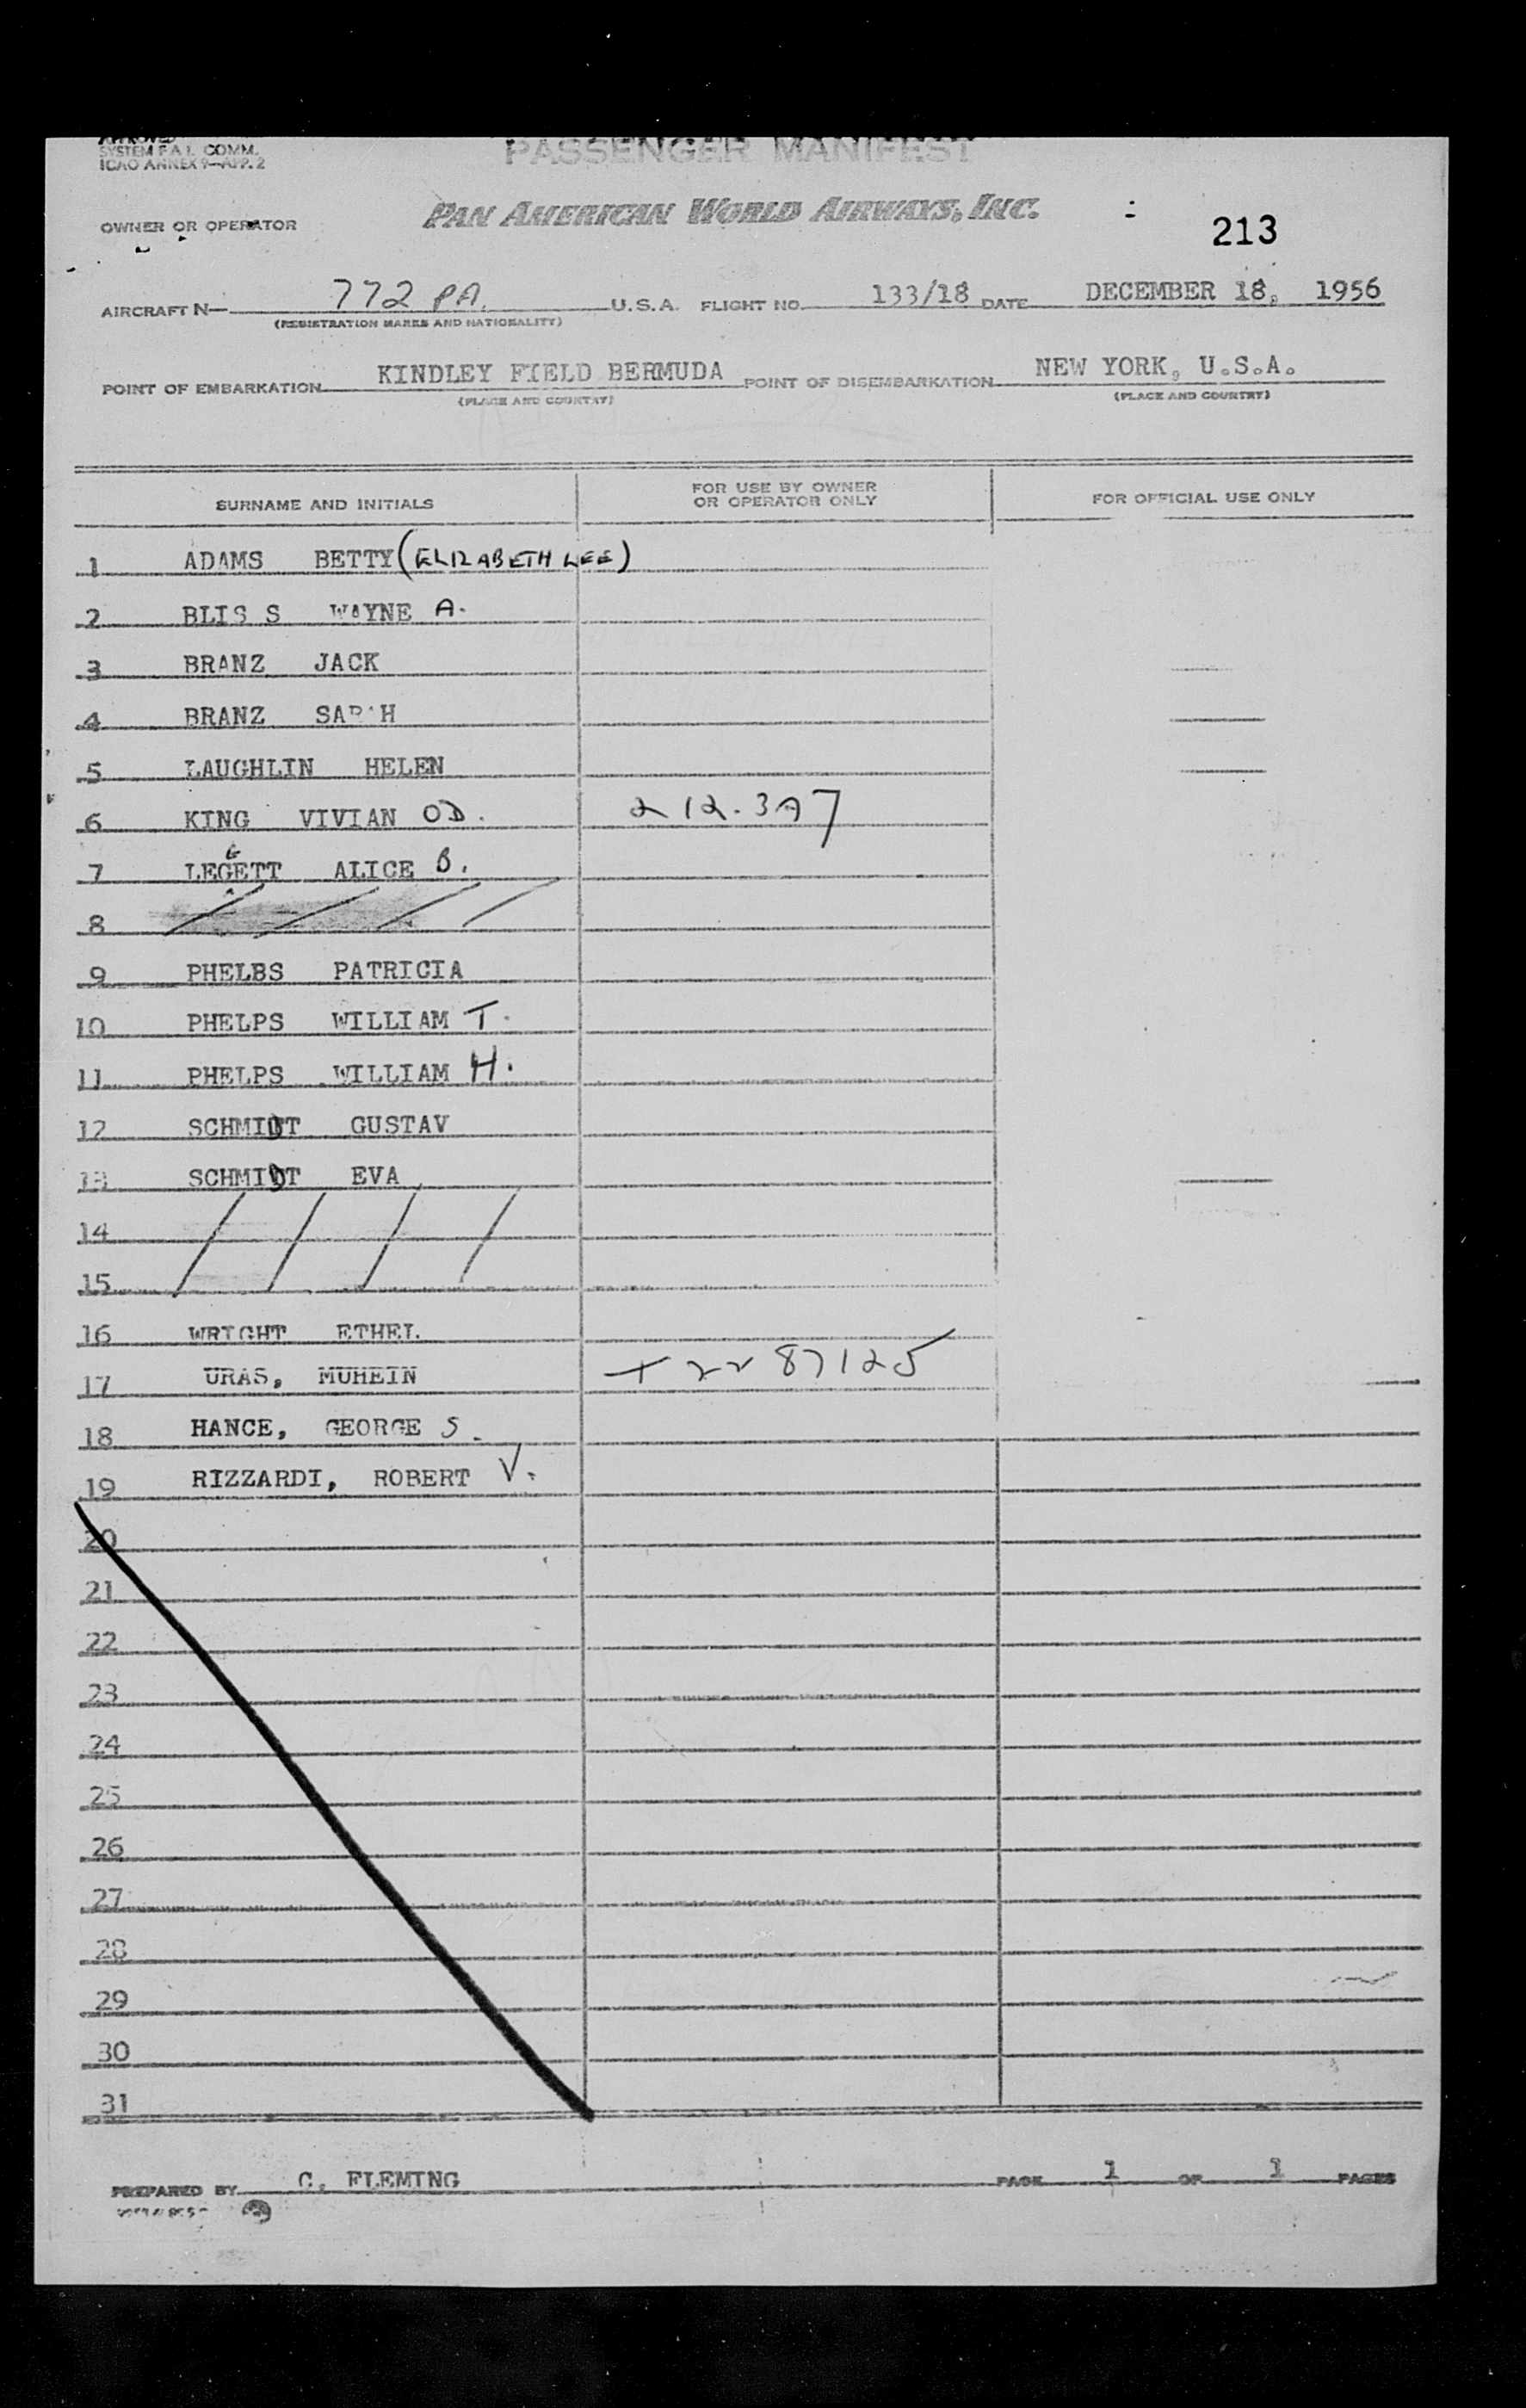 APPROVED
SYSTEM F.A.L. COMM.
ICAO ANNEX 9-APP. 2
PASSENGER MANIFEST
OWNER OR OPERATOR PAN AMERICAN WORLD AIRWAYS, INC.
213
AIRCRAFT N- 772 PA. U.S.A. FLIGHT NO. 133/18 DATE DECEMBER 18, 1956
(REGISTRATION MARKS AND NATIONALITY)
POINT OF EMBARKATION KINDLEY FIELD BERMUDA POINT OF DISEMBARKATION NEW YORK, U.S.A.
(PLACE AND COUNTRY) (PLACE AND COUNTRY)
SURNAME AND INITIALS FOR USE BY OWNER OR OPERATOR ONLY FOR OFFICIAL USE ONLY
1 ADAMS BETTY (ELIZABETH LEE)
2 BLISS WAYNE A.
3 BRANZ JACK
4 BRANZ SARAH
5 LAUGHLIN HELEN
6 KING VIVIAN OD. 212.397
7 LEGGETT ALICE B.
8
9 PHELBS PATRICIA
10 PHELPS WILLIAM T.
11 PHELPS WILLIAM H.
12 SCHMIDT GUSTAV
13 SCHMIDT EVA
14
15
16 WRIGHT ETHEL
17 URAS, MUHEIN 2287125
18 HANCE, GEORGE S.
19 RIZZARDI, ROBERT V.
20
21
22
23
24
25
26
27
28
29
30
31
PREPARED BY C. FLEMING PAGE 1 OF 1 PAGES